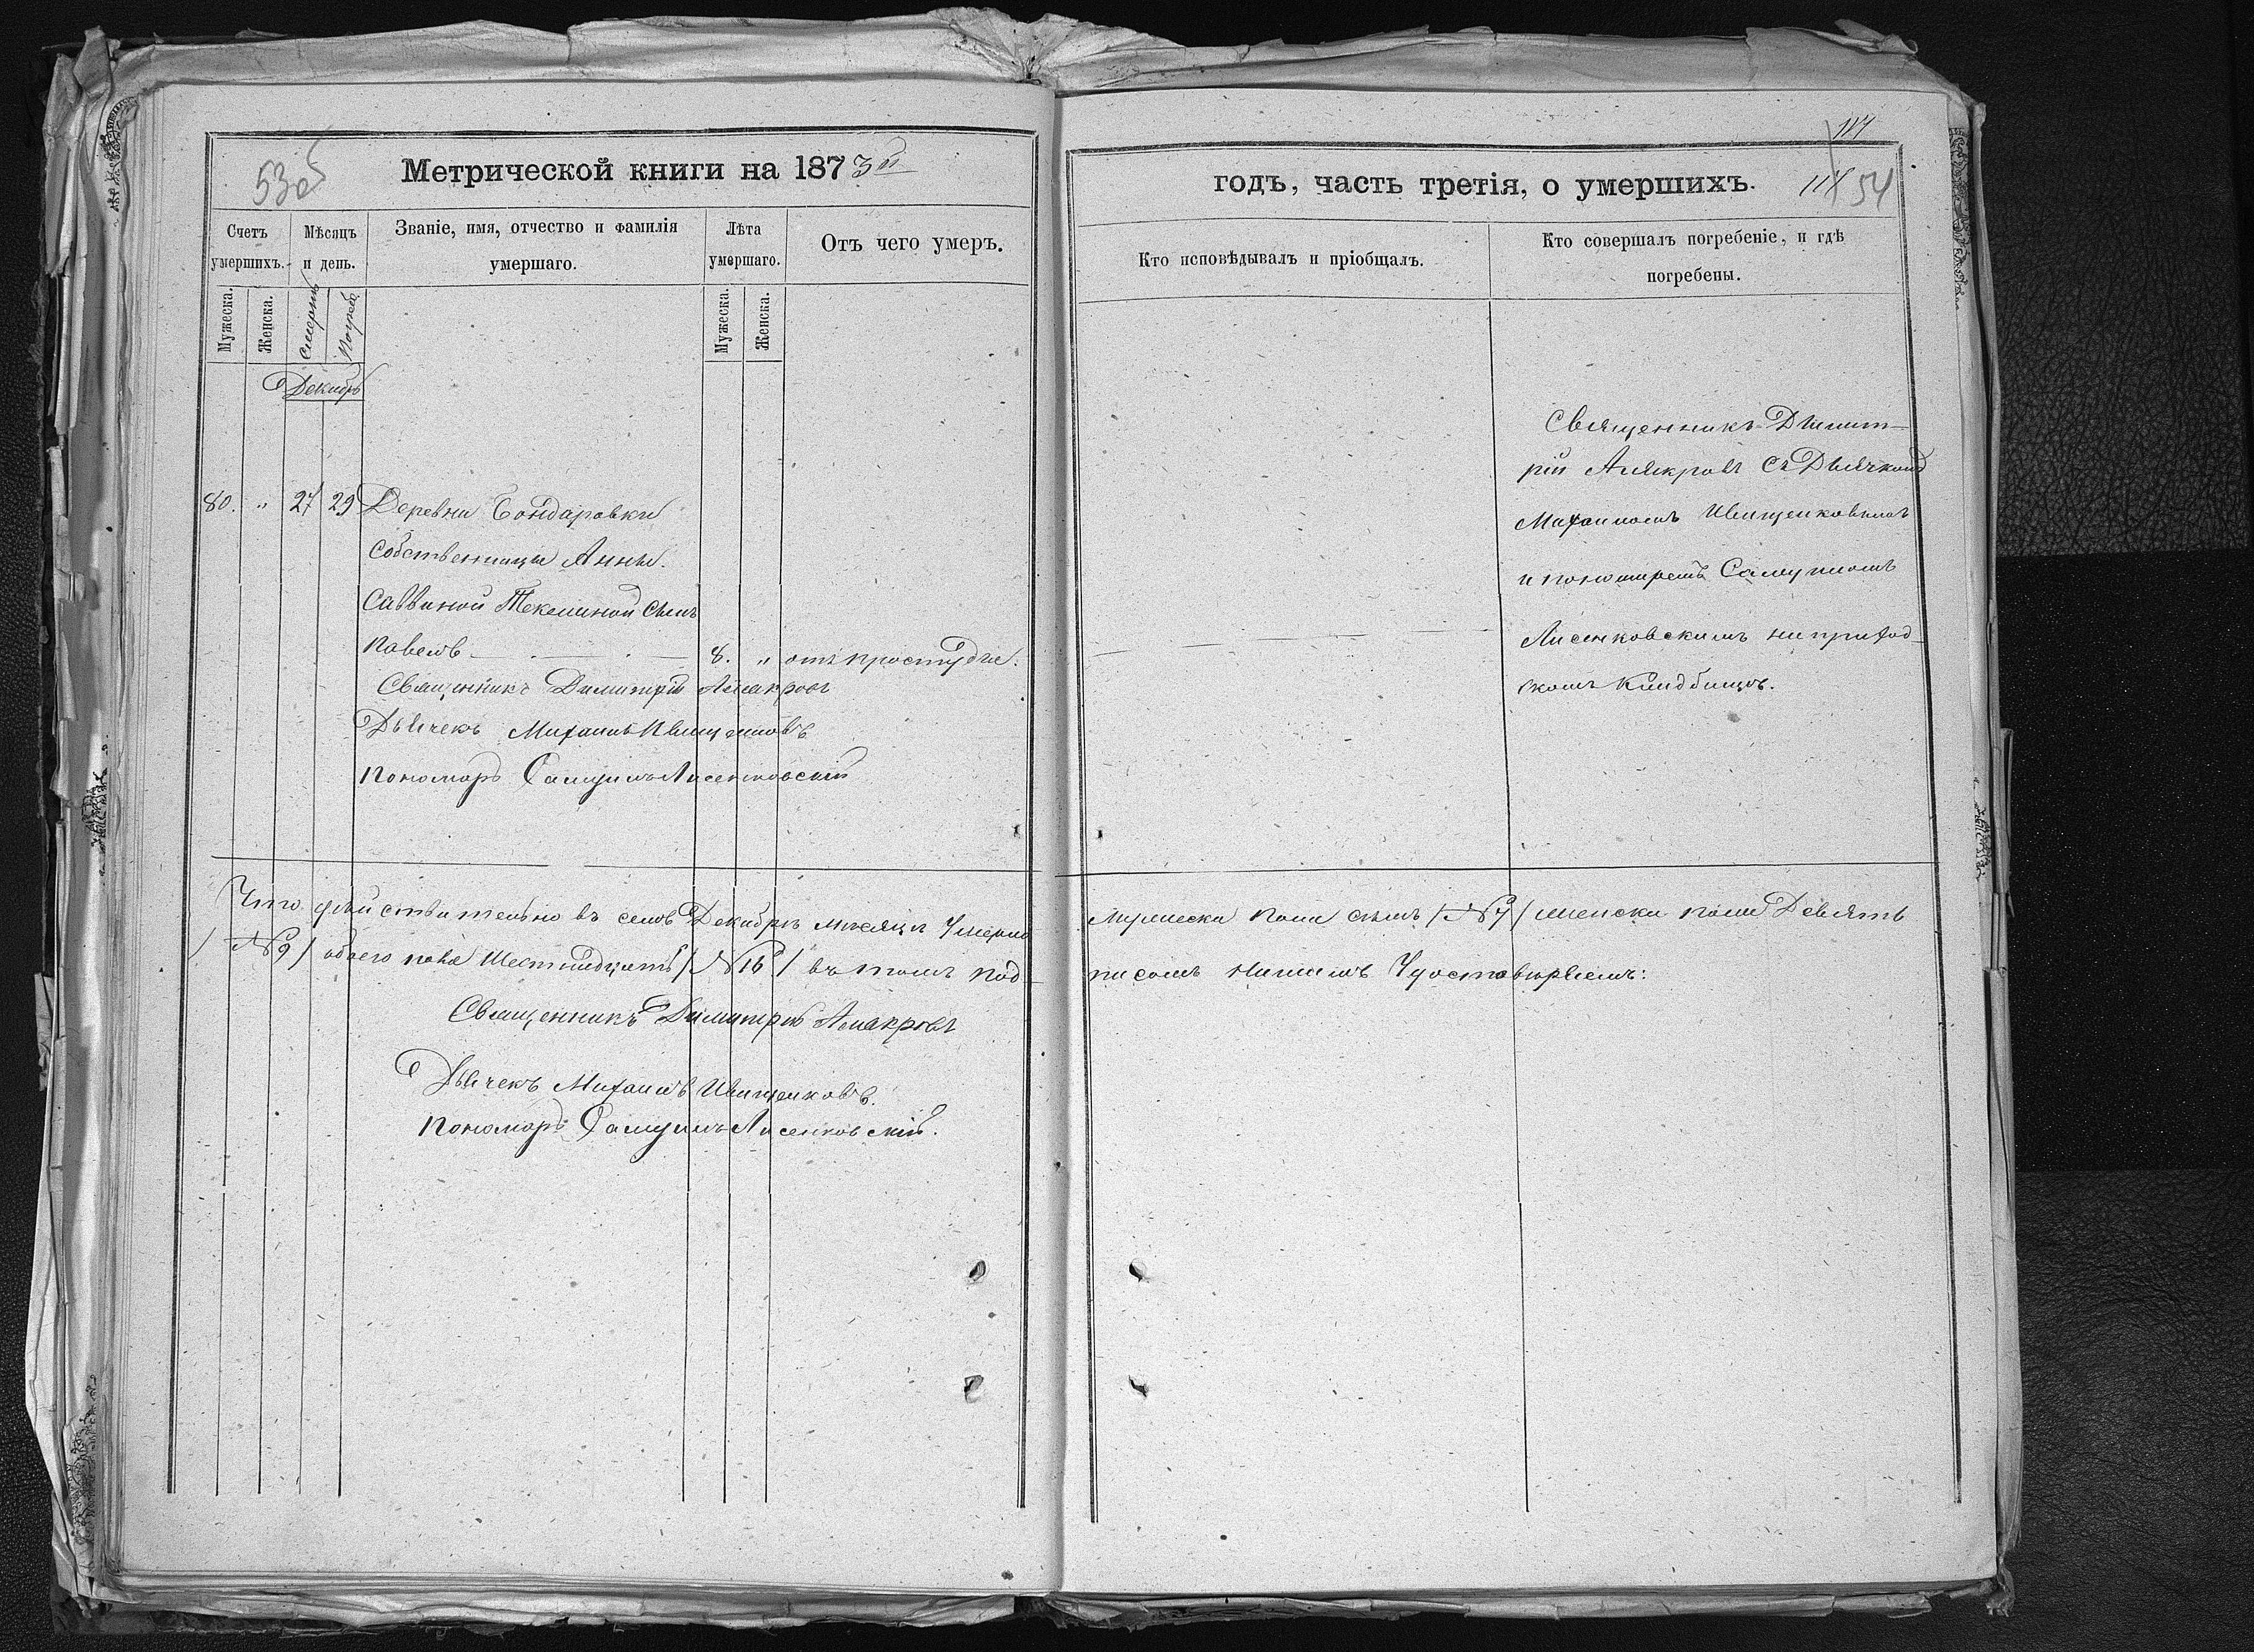 53об
Метрической книги на 1873й
Счетъ умершихъ.
Мѣсяцъ и день.
Званіе, имя, отчество и фамилія умершаго.
Лѣта умершаго.
Отъ чего умеръ.
Мужеска.
Женска.
Смерть
Погреб.
Мужеска.
Женска.
Декабрь
80. „ 27 29 Деревни Бондаровки
Собственницы Анны
Саввиной Текелиной Сынъ
Павелъ 8. „ отъ простуды.
Священникъ Димитрій
Дьячекъ Михаилъ Иващенковъ
Пономарь Самуилъ Лисенковскій
Что дѣйствительно въ семъ Декабрѣ мѣсяцѣ Умерло
/ №9 / обоего пола Шестнадцать / №16 / въ томъ под-
Священникъ Димитрій
Дьячекъ Михаилъ Иващенковъ.
Пономарь Самуилъ Лисенковскій.
117
54
годъ, часть третія, о умершихъ.
Кто исповѣдывалъ и пріобщалъ.
Кто совершалъ погребеніе, и гдѣ погребены.
Священникъ Димит-
рій съ Дьячкомъ
Михаиломъ Иващенковымъ
и пономремъ Самуиломъ
Лисенковскимъ на приход-
скомъ кладбищѣ.
мужеска пола семь / №7 / женска пола Девять
писомъ нашимъ Удостовѣряемъ: